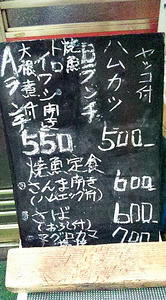 ヤッコ付
ハムカツ
500-
Bランチ
焼魚
トロイワシ開き
大根煮付
Aランチ
550
焼魚定食
さんま開き
(ハムエッグ付)
600
さば
600-
700